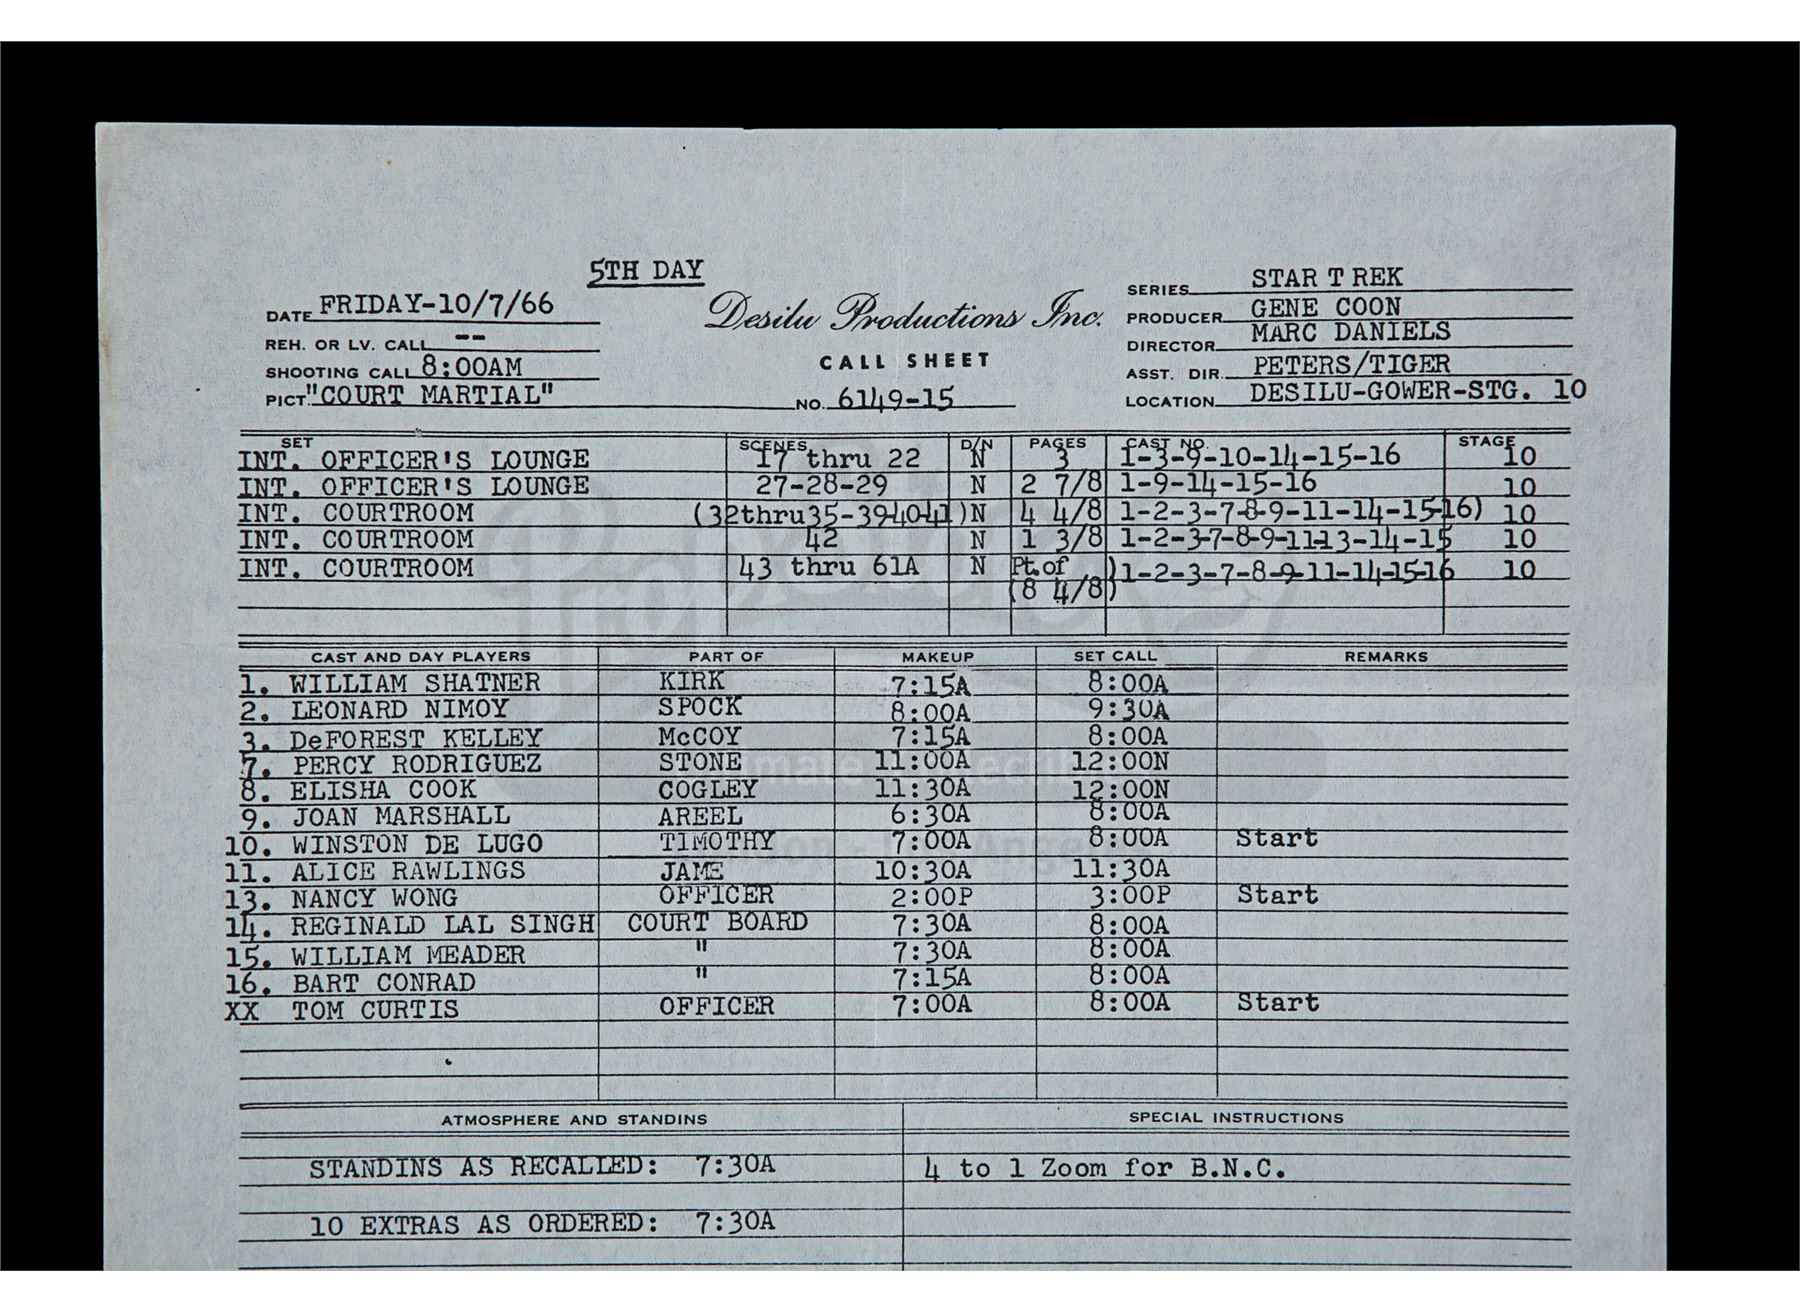 5TH DAY
DATE FRIDAY-10/7/66
REH. OR LV. CALL --
SHOOTING CALL 8:00AM
PICT. "COURT MARTIAL"
Desilu Productions Inc.
CALL SHEET
NO. 6149-15
SERIES STAR T REK
PRODUCER GENE COON
DIRECTOR MARC DANIELS
ASST. DIR. PETERS/TIGER
LOCATION DESILU-GOWER-STG. 10
SET SCENES D/N PAGES CAST NO. STAGE
INT. OFFICER'S LOUNGE 17 thru 22 N 3 1-3-9-10-14-15-16 10
INT. OFFICER'S LOUNGE 27-28-29 N 2 7/8 1-9-14-15-16 10
INT. COURTROOM (32thru35-39-40-41)N 4 4/8 1-2-3-7-8-9-11-14-15-16) 10
INT. COURTROOM 42 N 1 3/8 1-2-3-7-8-9-11-13-14-15 10
INT. COURTROOM 43 thru 61A N Pt.of )1-2-3-7-8-9-11-14-15-16 10
(8 4/8)
CAST AND DAY PLAYERS PART OF MAKEUP SET CALL REMARKS
1. WILLIAM SHATNER KIRK 7:15A 8:00A
2. LEONARD NIMOY SPOCK 8:00A 9:30A
3. DeFOREST KELLEY McCOY 7:15A 8:00A
7. PERCY RODRIGUEZ STONE 11:00A 12:00N
8. ELISHA COOK COGLEY 11:30A 12:00N
9. JOAN MARSHALL AREEL 6:30A 8:00A
10. WINSTON DE LUGO TIMOTHY 7:00A 8:00A Start
11. ALICE RAWLINGS JAME 10:30A 11:30A
13. NANCY WONG OFFICER 2:00P 3:00P Start
14. REGINALD LAL SINGH COURT BOARD 7:30A 8:00A
15. WILLIAM MEADER " 7:30A 8:00A
16. BART CONRAD " 7:15A 8:00A
XX TOM CURTIS OFFICER 7:00A 8:00A Start
ATMOSPHERE AND STANDINS SPECIAL INSTRUCTIONS
STANDINS AS RECALLED: 7:30A 4 to 1 Zoom for B.N.C.
10 EXTRAS AS ORDERED: 7:30A